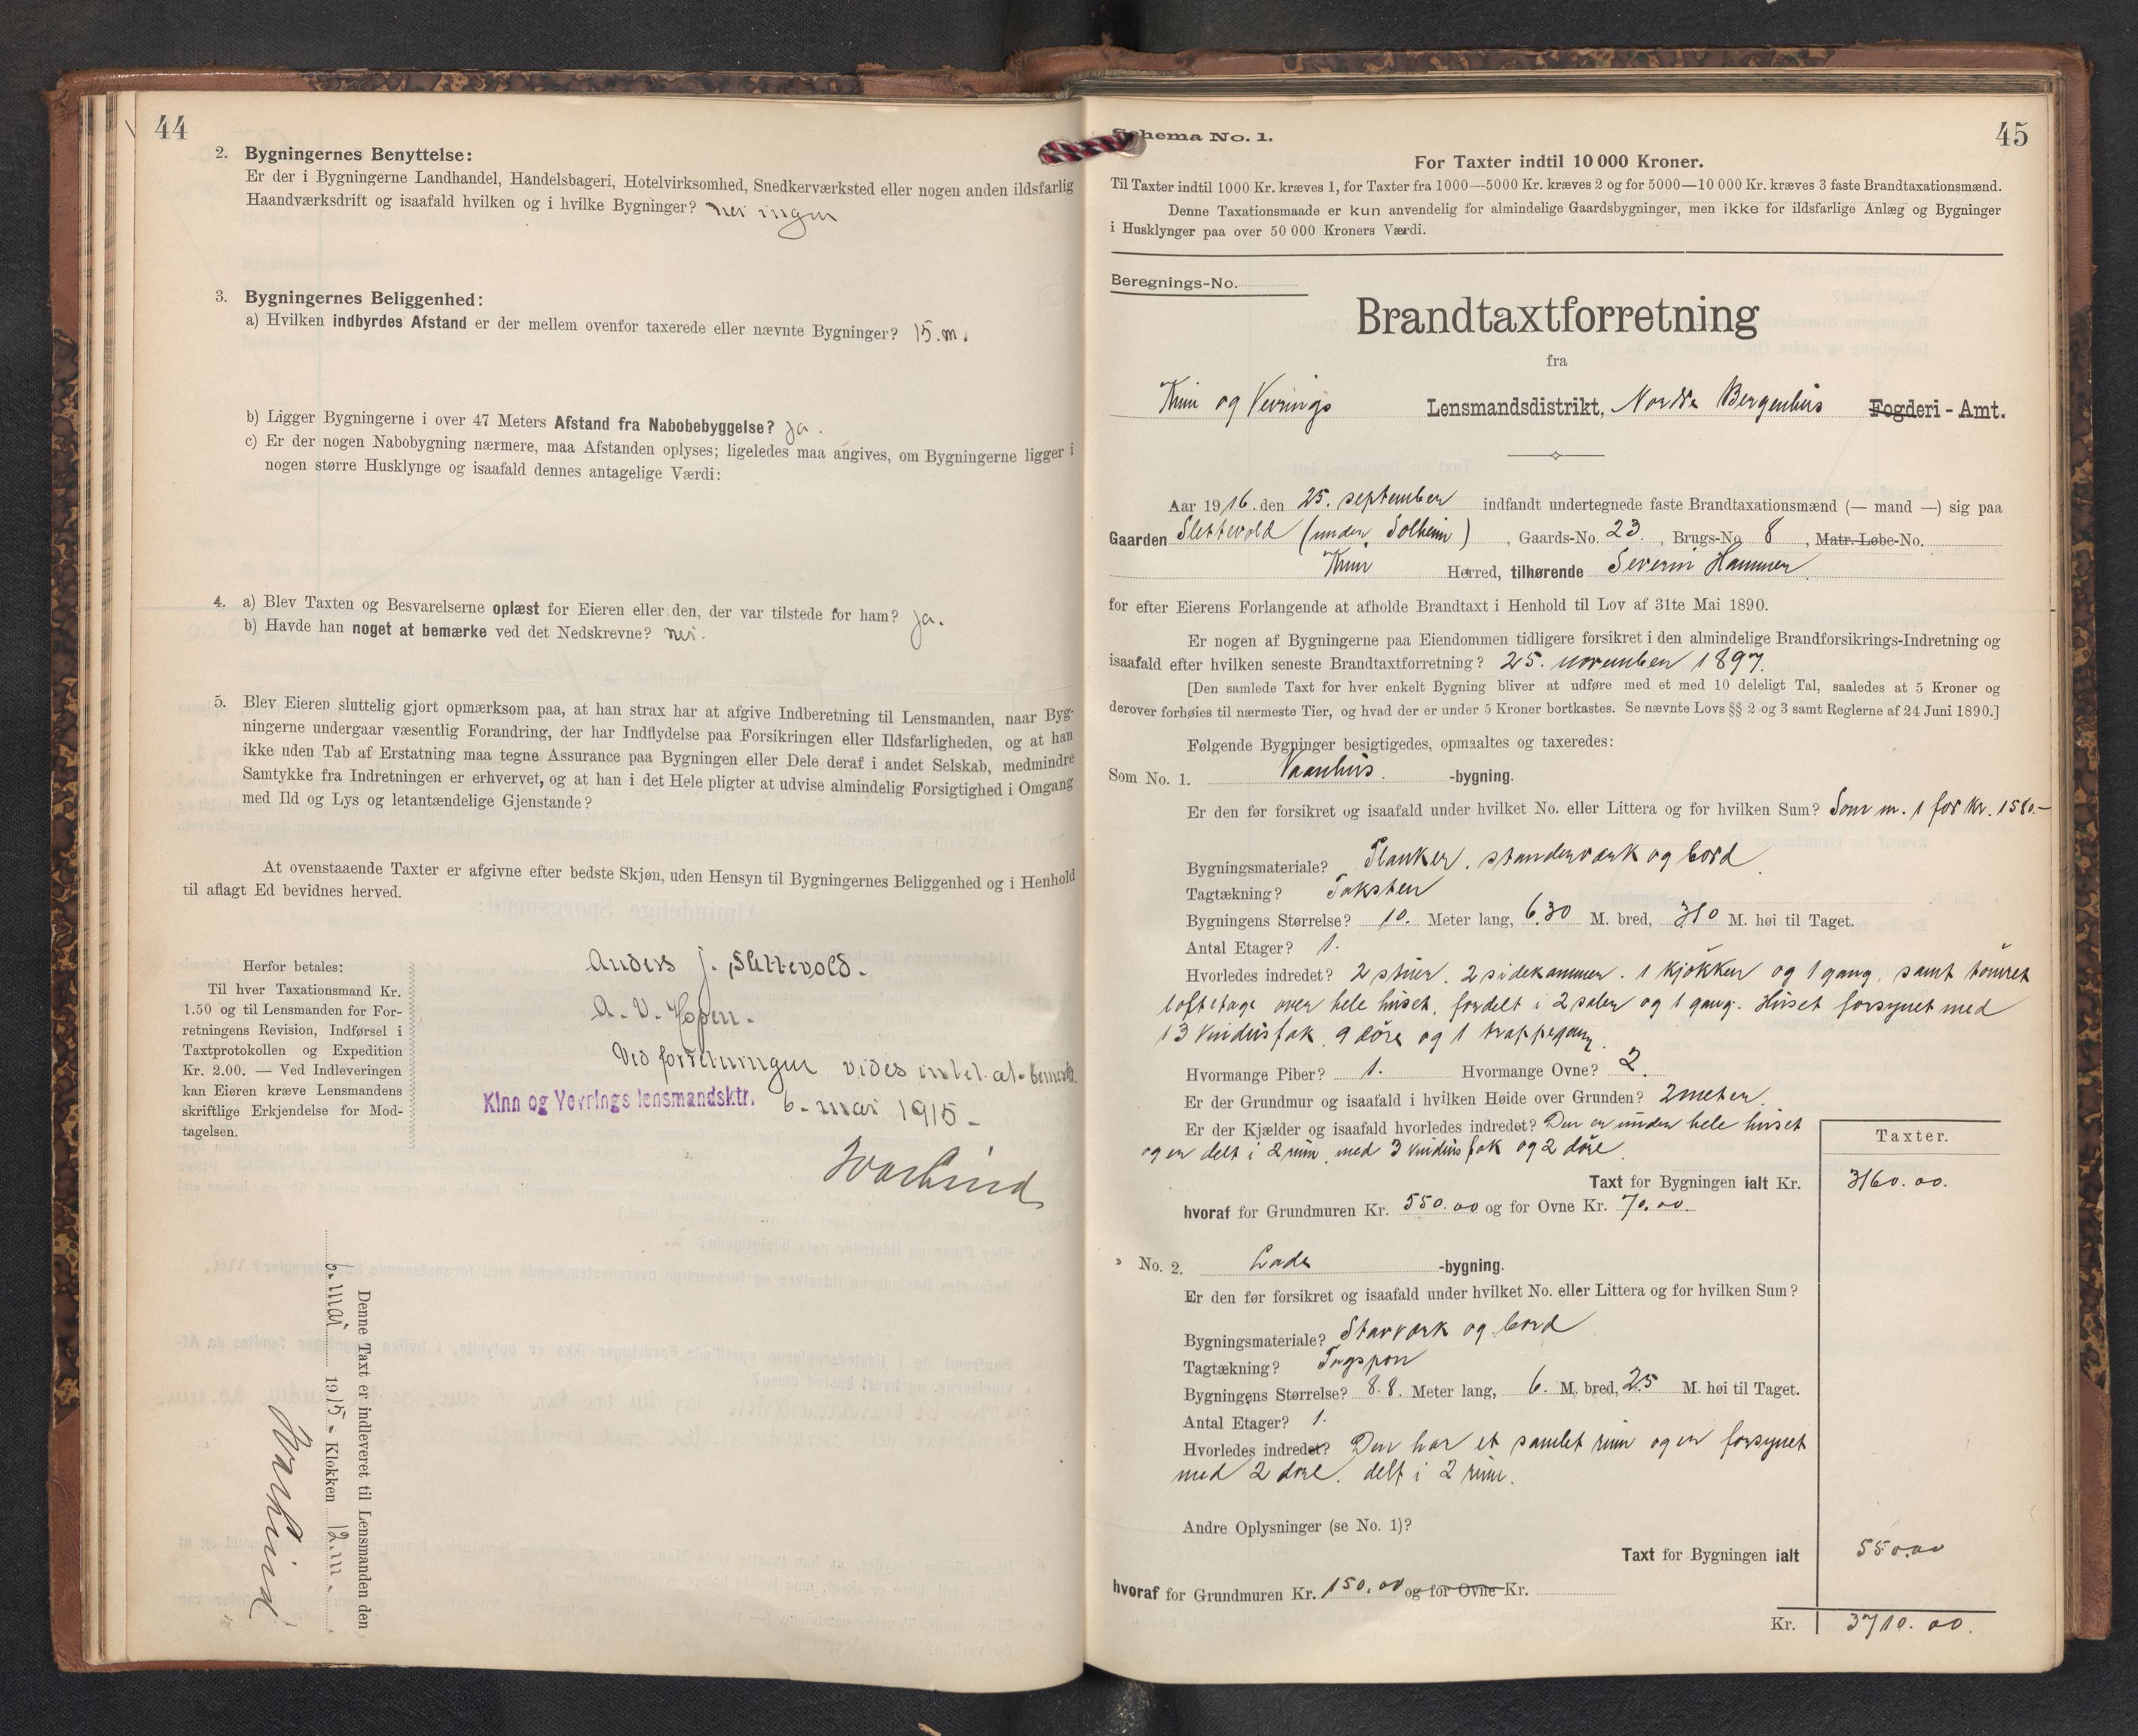 44
2. Bygningernes Benyttelse:
Er der i Bygningerne Landhandel, Handelsbageri, Hotelvirksomhed, Snedkerværksted eller nogen anden ildsfarlig
Haandværksdrift og isaafald hvilken og i hvilke Bygninger? nei ingen
3. Bygningernes Beliggenhed:
a) Hvilken indbyrdes Afstand er der mellem ovenfor taxerede eller nævnte Bygninger? 15.m.
b) Ligger Bygningerne i over 47 Meters Afstand fra Nabobebyggelse? ja.
c) Er der nogen Nabobygning nærmere, maa Afstanden oplyses; ligeledes maa angives, om Bygningerne ligger i
nogen større Husklynge og isaafald dennes antagelige Værdi:
4. a) Blev Taxten og Besvarelserne oplæst for Eieren eller den, der var tilstede for ham? ja.
b) Havde han noget at bemærke ved det Nedskrevne? nei.
5. Blev Eieren sluttelig gjort opmærksom paa, at han strax har at afgive Indberetning til Lensmanden, naar Byg-
ningerne undergaar væsentlig Forandring, der har Indflydelse paa Forsikringen eller Ildsfarligheden, og at han
ikke uden Tab af Erstatning maa tegne Assurance paa Bygningen eller Dele deraf i andet Selskab, medmindre
Samtykke fra Indretningen er erhvervet, og at han i det Hele pligter at udvise almindelig Forsigtighed i Omgang
med Ild og Lys og letantændelige Gjenstande?
At ovenstaaende Taxter er afgivne efter bedste Skjøn, uden Hensyn til Bygningernes Beliggenhed og i Henhold
til aflagt Ed bevidnes herved.
Herfor betales:
Til hver Taxationsmand Kr.
1.50 og til Lensmanden for For-
retningens Revision, Indførsel i
Taxtprotokollen og Expedition
Kr. 2.00. — Ved Indleveringen
kan Eieren kræve Lensmandens
skriftlige Erkjendelse for Mod-
tagelsen.
Anders J. Slettevold.
A. V. Hopen.
Ved forretningen vides intet at bemerke.
Kinn og Vevrings lensmandsktr. 6. mai 1915 -
Denne Taxt er indleveret til Lensmanden den
6. mai 1915 - Klokken 12.m.
Schema No. 1.
45
For Taxter indtil 10 000 Kroner.
Til Taxter indtil 1000 Kr. kræves 1, for Taxter fra 1000—5000 Kr. kræves 2 og for 5000—10 000 Kr. kræves 3 faste Brandtaxationsmænd.
Denne Taxationsmaade er kun anvendelig for almindelige Gaardsbygninger, men ikke for ildsfarlige Anlæg og Bygninger
i Husklynger paa over 50 000 Kroners Værdi.
Beregnings-No.
Brandtaxtforretning
fra
Kinn og Vevrings Lensmandsdistrikt, Nordre Bergenhus Fogderi - Amt.
Aar 1916. den 25. september indfandt undertegnede faste Brandtaxationsmænd (— mand —) sig paa
Gaarden Slettevold (under Solheim), Gaards-No. 23., Brugs-No. 8, Matr.-Løbe-No.
Kinn Herred, tilhørende Severin Hammer
for efter Eierens Forlangende at afholde Brandtaxt i Henhold til Lov af 31te Mai 1890.
Er nogen af Bygningerne paa Eiendommen tidligere forsikret i den almindelige Brandforsikrings-Indretning og
isaafald efter hvilken seneste Brandtaxtforretning? 25. november 1897.
[Den samlede Taxt for hver enkelt Bygning bliver at udføre med et med 10 deleligt Tal, saaledes at 5 Kroner og
derover forhøies til nærmeste Tier, og hvad der er under 5 Kroner bortkastes. Se nævnte Lovs §§ 2 og 3 samt Reglerne af 24 Juni 1890.]
Følgende Bygninger besigtigedes, opmaaltes og taxeredes:
Som No. 1. Vaanhus. -bygning.
Er den før forsikret og isaafald under hvilket No. eller Littera og for hvilken Sum? Som nr. 1 for kr. 1580.-
Bygningsmateriale? Planker, standerværk og bord
Tagtækning? Taksten
Bygningens Størrelse? 10. Meter lang, 6.30 M. bred, 3.10 M. høi til Taget.
Antal Etager? 1.
Hvorledes indredet? 2 stuer, 2 sidekammer, 1 kjøkken og 1 gang, samt tømret
loftetage over hele huset, fordelt i 2 saler og 1 gang. Huset forsynet med
13 vindusfak, 9 døre og 1 trappegang.
Hvormange Piber? 1. Hvormange Ovne? 2.
Er der Grundmur og isaafald i hvilken Høide over Grunden? 2 meter.
Er der Kjælder og isaafald hvorledes indredet? Den er under hele huset
og er delt i 2 rum, med 3 vindusfak og 2 døre.
Taxter.
Taxt for Bygningen ialt Kr. 3160.00.
hvoraf for Grundmuren Kr. 550.00 og for Ovne Kr. 70.00.
» No. 2. Lade -bygning.
Er den før forsikret og isaafald under hvilket No. eller Littera og for hvilken Sum?
Bygningsmateriale? Stavværk og bord
Tagtækning? Tagspon
Bygningens Størrelse? 8.8. Meter lang, 6. M. bred, 2.5 M. høi til Taget.
Antal Etager? 1.
Hvorledes indredet? Den har et samlet rum og er forsynet
med 2 døre. delt i 2 rum.
Andre Oplysninger (se No. 1)?
Taxt for Bygningen ialt 550.00
hvoraf for Grundmuren Kr. 150.00 og for Ovne Kr.
Kr. 3710.00.